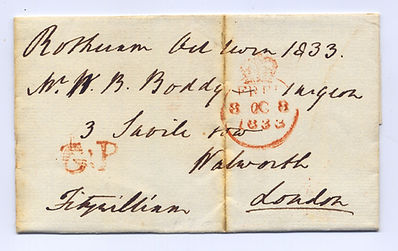 Rotherham Oct seven 1833.
Mr. W. B. Boddy Surgeon
FREE
8 OC 8
1833
3 Savile Row
G.P
Walworth
Fitzwilliam
London